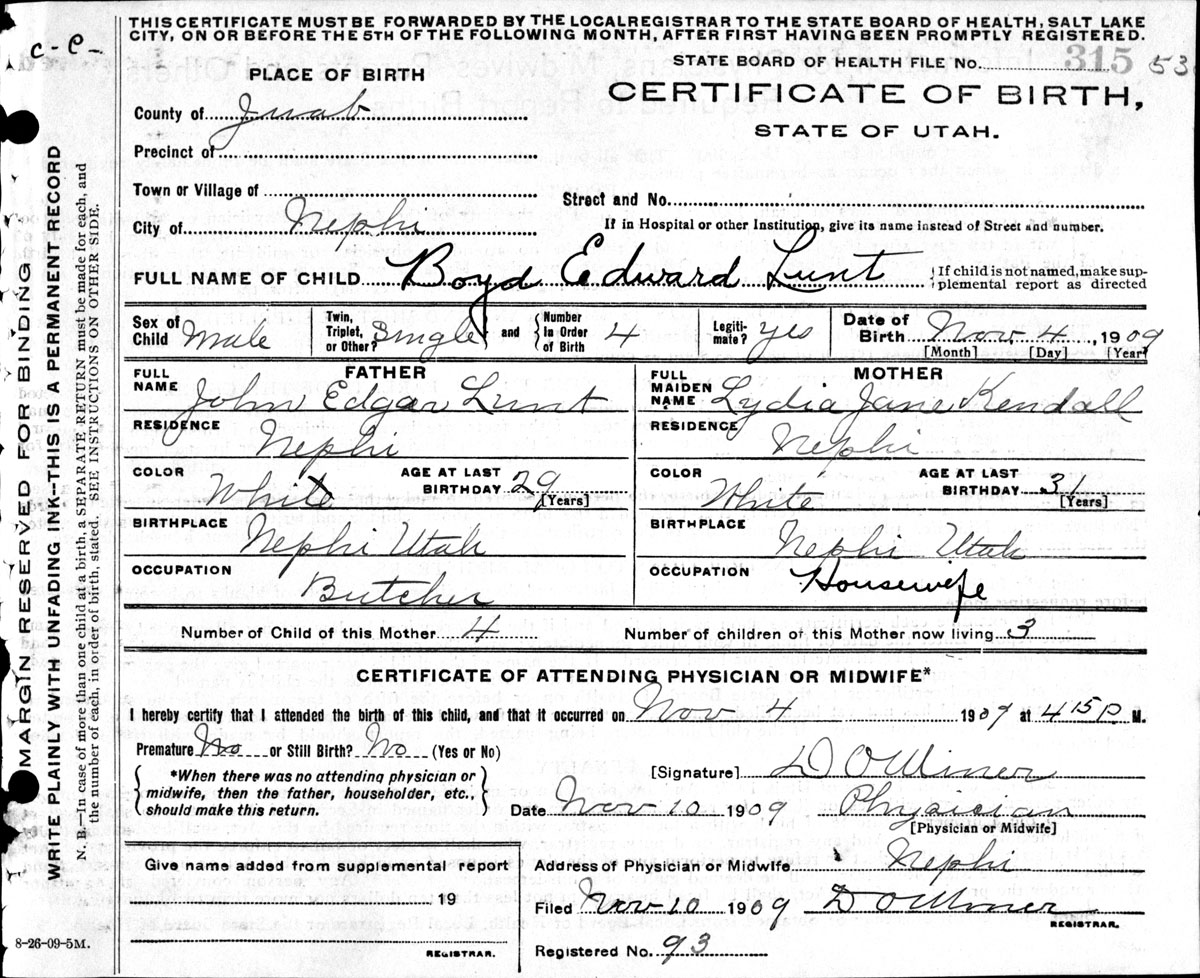 THIS CERTIFICATE MUST BE FORWARDED BY THE LOCALREGISTRAR TO THE STATE BOARD OF HEALTH, SALT LAKE
CITY, ON OR BEFORE THE 5TH OF THE FOLLOWING MONTH, AFTER FIRST HAVING BEEN PROMPTLY REGISTERED.
C-C-
STATE BOARD OF HEALTH FILE No. 315 53
PLACE OF BIRTH
CERTIFICATE OF BIRTH,
STATE OF UTAH.
County of Juab
Precinct of
Town or Village of
Street and No.
City of Nephi
If in Hospital or other Institution, give its name instead of Street and number.
FULL NAME OF CHILD Boyd Edward Lunt
If child is not named, make sup-
plemental report as directed
Sex of Child Male
Twin, Triplet, or Other? Single and Number In Order of Birth 4
Legiti-mate? yes
Date of Birth Nov 4, 1909
[Month] [Day] [Year]
FATHER
FULL NAME John Edgar Lunt
RESIDENCE Nephi
COLOR White AGE AT LAST BIRTHDAY 29 [Years]
BIRTHPLACE Nephi Utah
OCCUPATION Butcher
MOTHER
FULL MAIDEN NAME Lydia Jane Kendall
RESIDENCE Nephi
COLOR White AGE AT LAST BIRTHDAY 31 [Years]
BIRTHPLACE Nephi Utah
OCCUPATION Housewife
Number of Child of this Mother 4 Number of children of this Mother now living 3
CERTIFICATE OF ATTENDING PHYSICIAN OR MIDWIFE*
I hereby certify that I attended the birth of this child, and that it occurred on Nov 4 1909 at 4 15 P M.
Premature No or Still Birth? No (Yes or No)
*When there was no attending physician or
midwife, then the father, householder, etc.,
should make this return.
[Signature] D O Miner
Date Nov 10 1909 Physician
[Physician or Midwife]
Give name added from supplemental report
19
REGISTRAR.
Address of Physician or Midwife Nephi
Filed Nov 10 1909 D O Miner
REGISTRAR.
Registered No. 93
8-26-09-5M.
MARGIN RESERVED FOR BINDING
WRITE PLAINLY WITH UNFADING INK--THIS IS A PERMANENT RECORD
N. B.—In case of more than one child at a birth, a SEPARATE RETURN must be made for each, and
the number of each, in order of birth, stated. SEE INSTRUCTIONS ON OTHER SIDE.